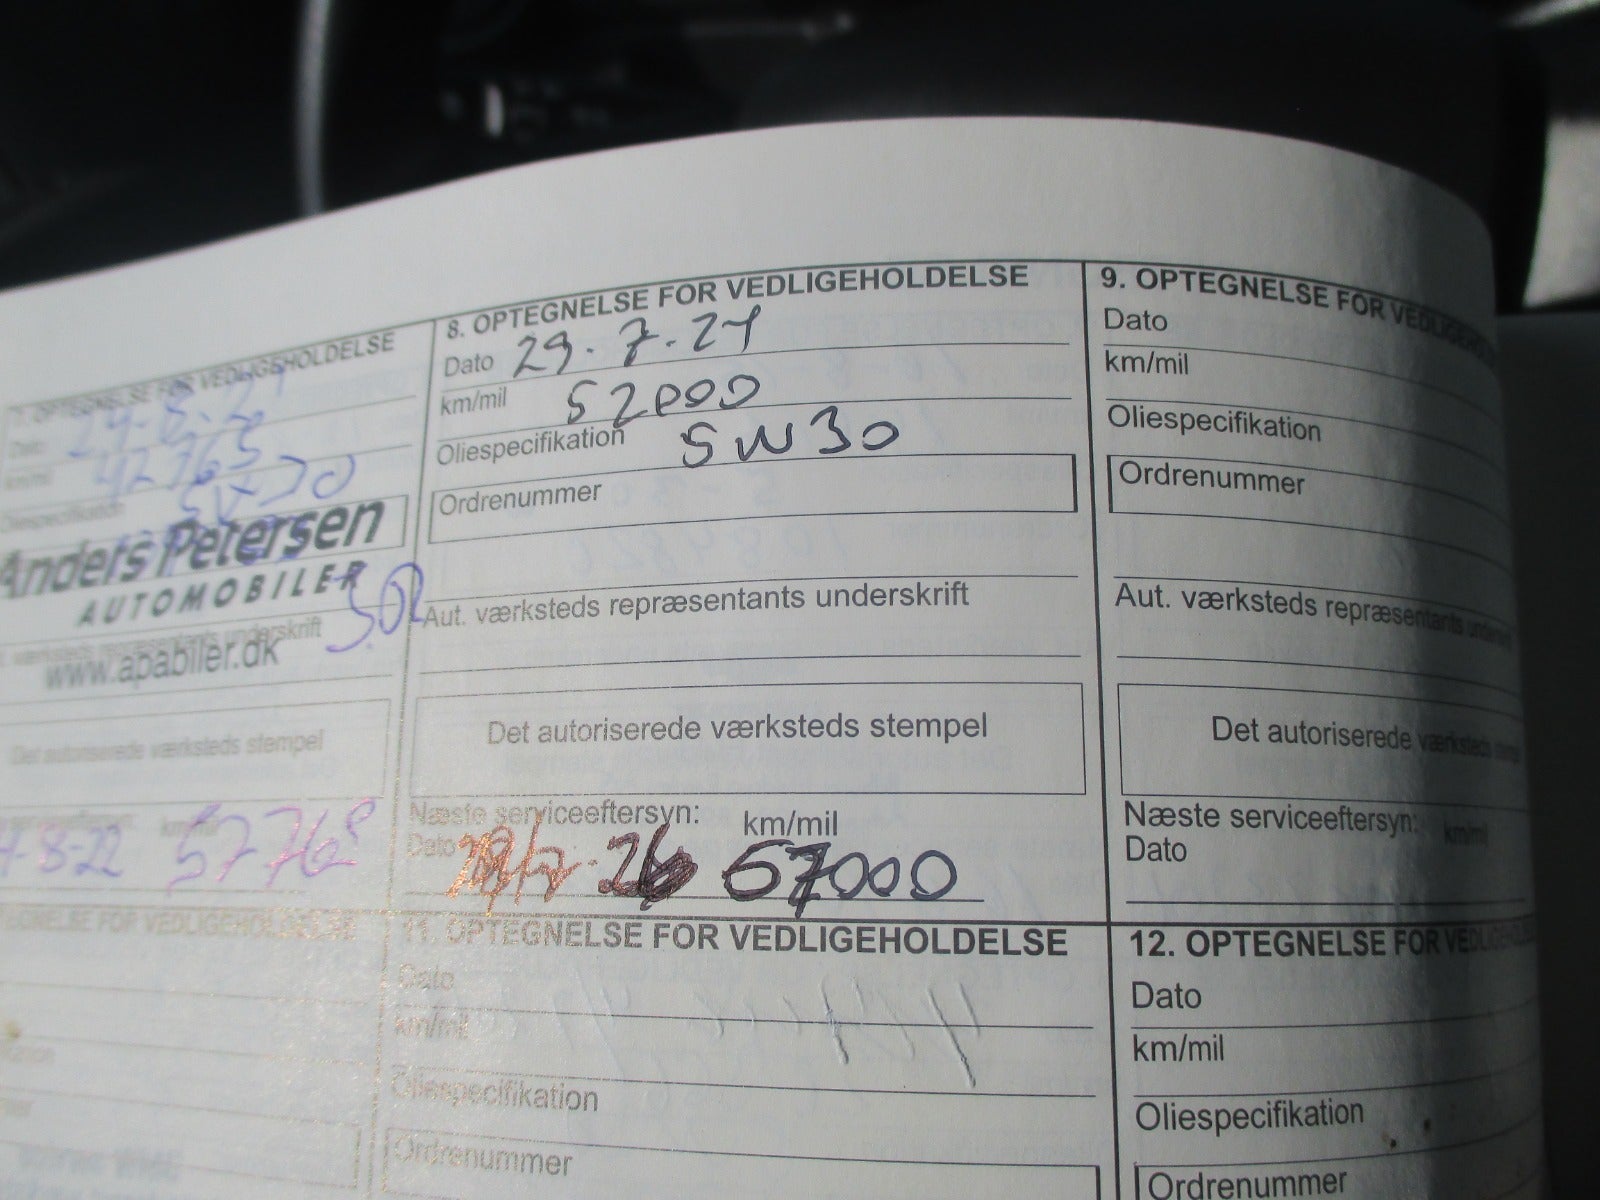 7. OPTEGNELSE FOR VEDLIGEHOLDELSE
Dato
km/mil 42765
Oliespecifikation
Anders Petersen
AUTOMOBILER
værksteds repræsentants underskrift
www.apabiler.dk
Det autoriserede værksteds stempel
km/mil
-8-22 57768
8. OPTEGNELSE FOR VEDLIGEHOLDELSE
Dato 29.7.24
km/mil 52000
Oliespecifikation 5W30
Ordrenummer
Aut. værksteds repræsentants underskrift
Det autoriserede værksteds stempel
Næste serviceeftersyn: km/mil
Dato 67000
9. OPTEGNELSE FOR VEDLIGEHOLDELSE
Dato
km/mil
Oliespecifikation
Ordrenummer
Aut. værksteds repræsentants
Det autoriserede værksteds
Næste serviceeftersyn: km/mil
Dato
OPTEGNELSE FOR VEDLIGEHOLDELSE
11. OPTEGNELSE FOR VEDLIGEHOLDELSE
Dato
km/mil
Oliespecifikation
Ordrenummer
12. OPTEGNELSE FOR
Dato
km/mil
Oliespecifikation
Ordrenummer